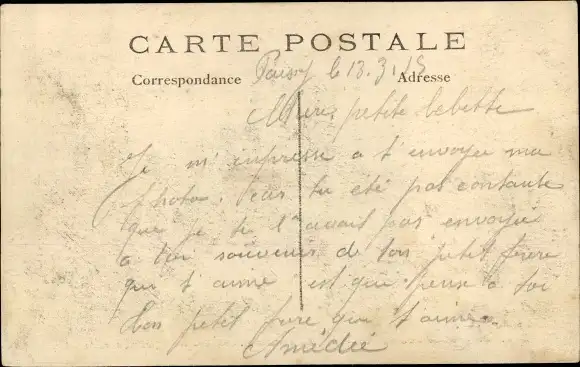 CARTE POSTALE
Correspondance
Adresse
le 13.3.15
petite bebette
Je m'inpresse a t'envoyer ma
photo. tu été pas contante
que je te l'avait pas envoyée
a toi souvenir de ton petit frere
qui t'aime est qui pense a toi
ton petit frere qui t'aime.
Amédée